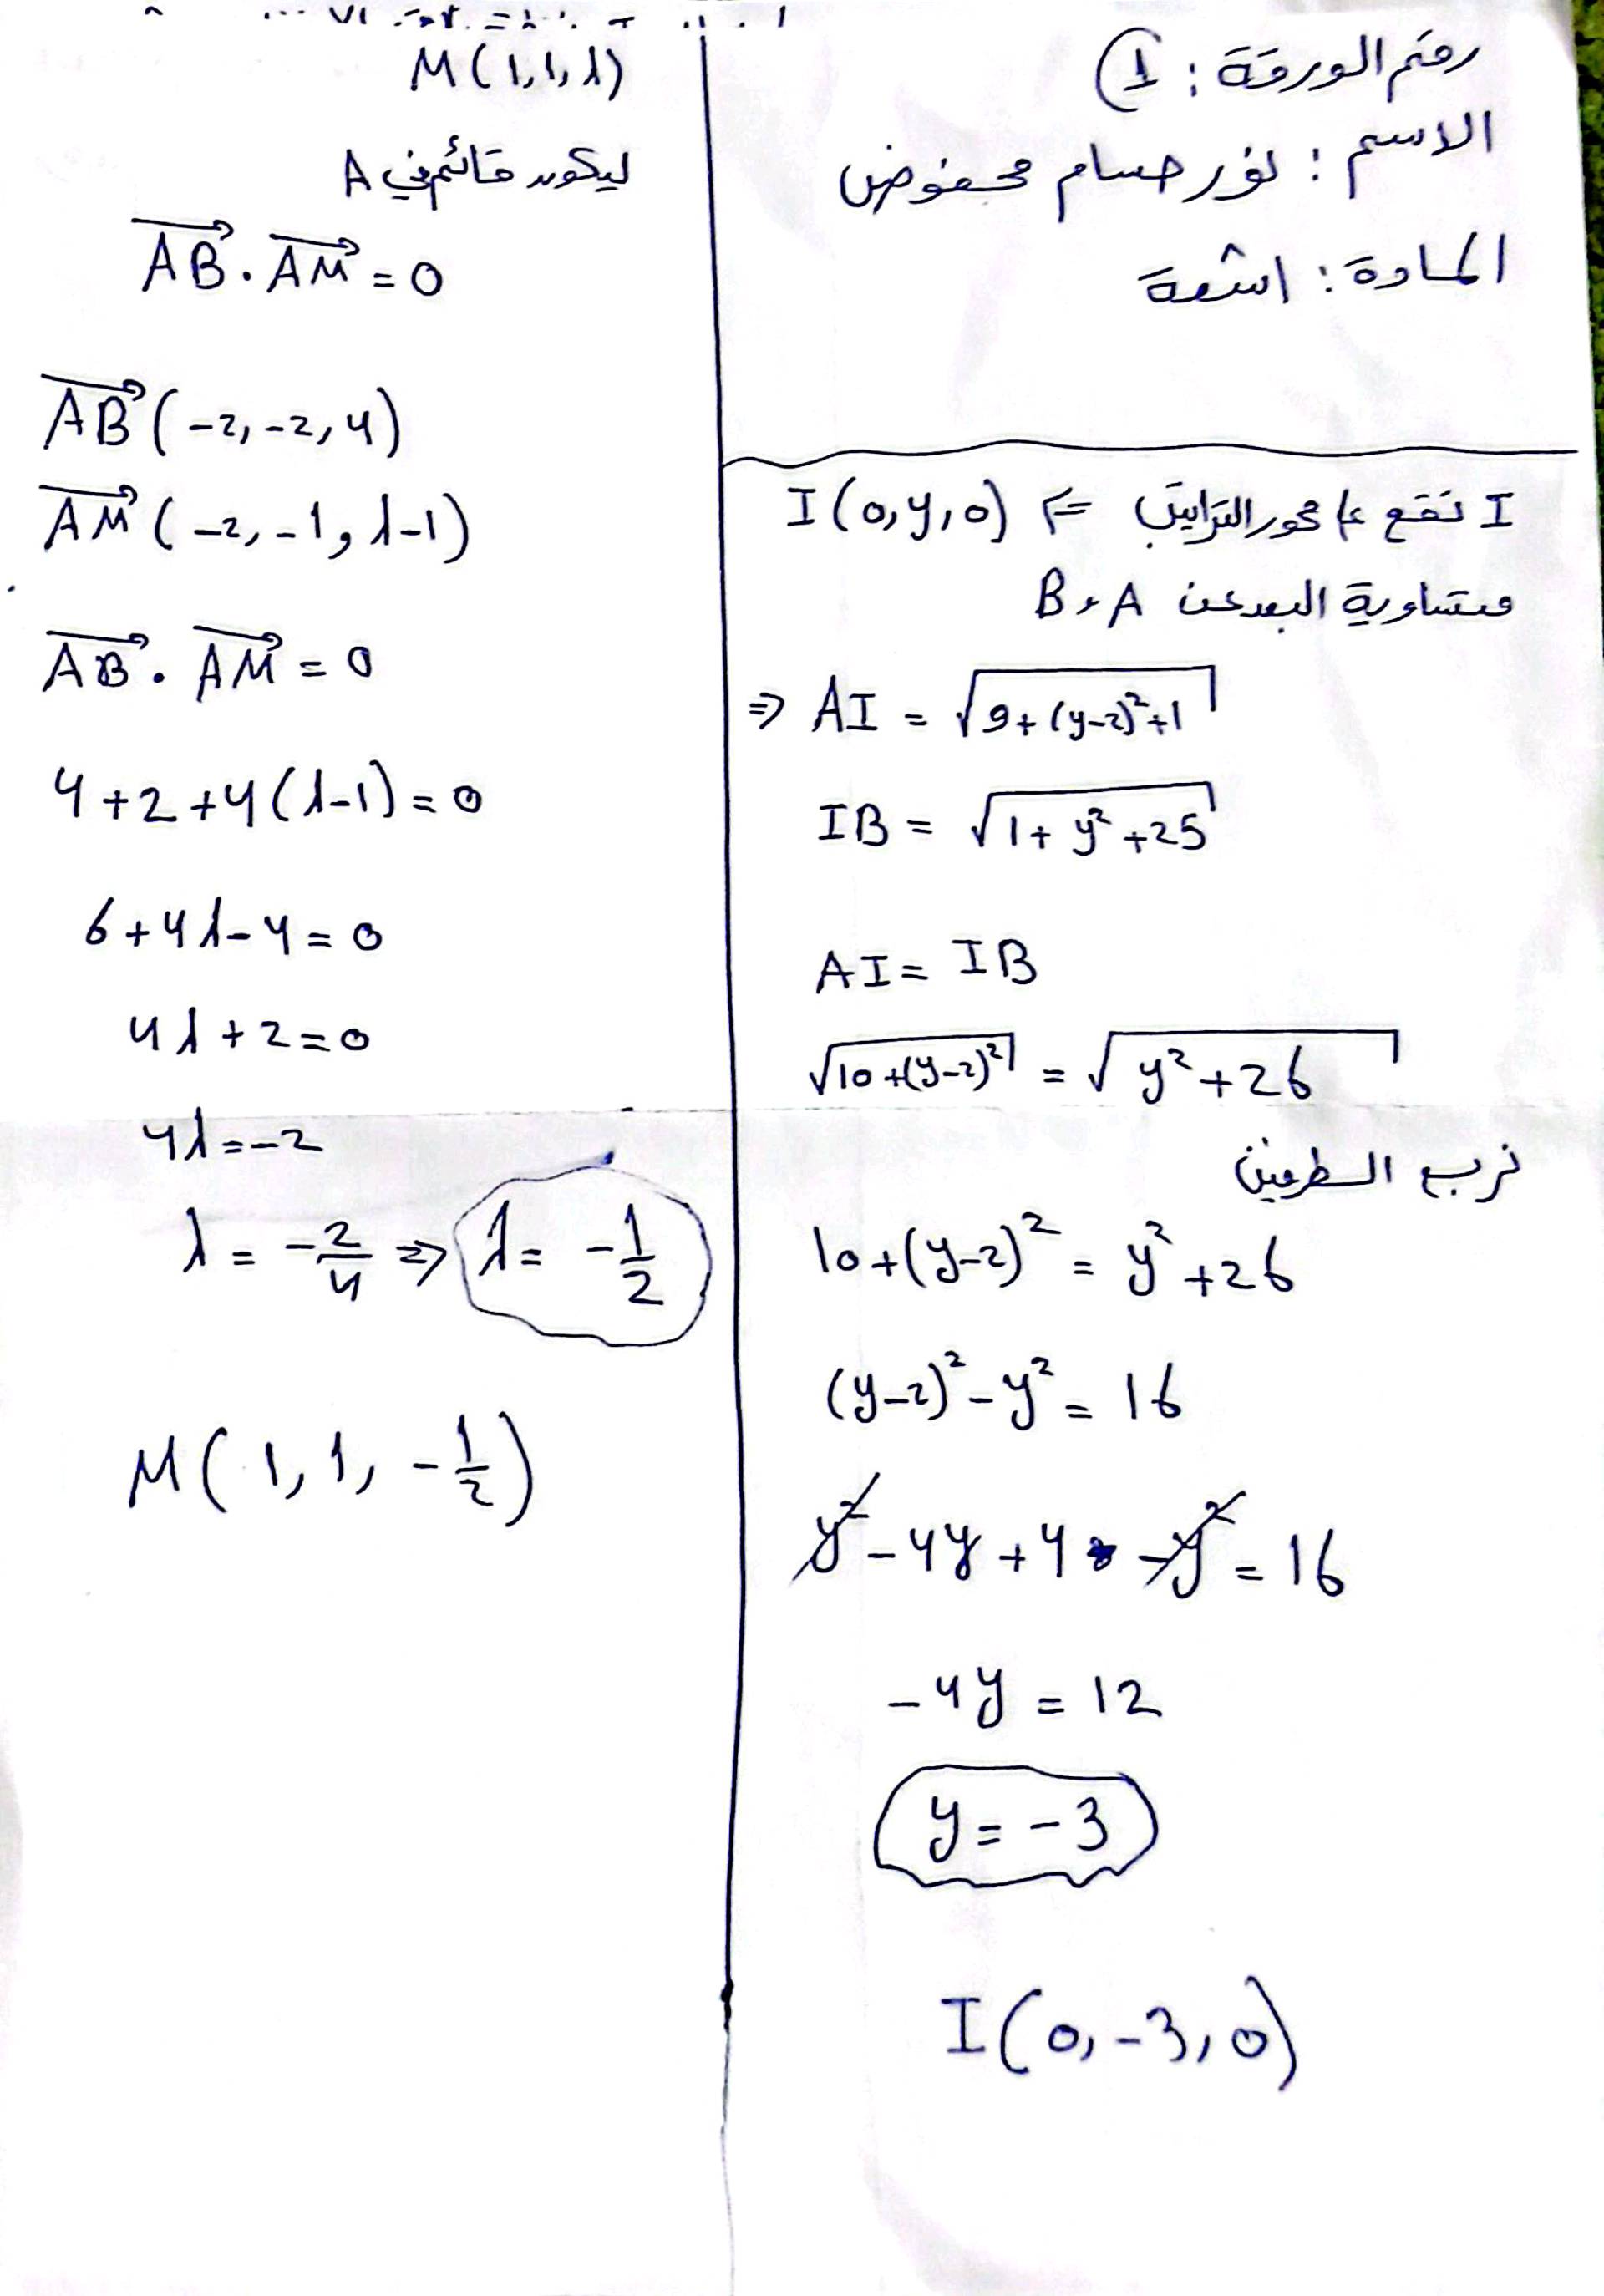 رقم الورقة : ①
الاسم : نور حسام محفوض
المادة : اشعة
I تقع ع محور التراتيب ⇐ I(0,y,0)
متساوية البعد عن A و B
⇒ AI = √(9+(y-2)²+1)
IB = √(1+y²+25)
AI = IB
√(10+(y-2)²) = √(y²+26)
نربع الطرفين
10+(y-2)² = y²+26
(y-2)²-y² = 16
y²-4y+4-y² = 16
-4y = 12
y = -3
I(0,-3,0)
M(1,1,λ)
ليكون قائم في A
AB⃗ . AM⃗ = 0
AB⃗ (-2,-2,4)
AM⃗ (-2,-1,λ-1)
AB⃗ . AM⃗ = 0
4+2+4(λ-1)=0
6+4λ-4=0
4λ+2=0
4λ=-2
λ = -2/4 ⇒ λ = -1/2
M(1,1,-1/2)